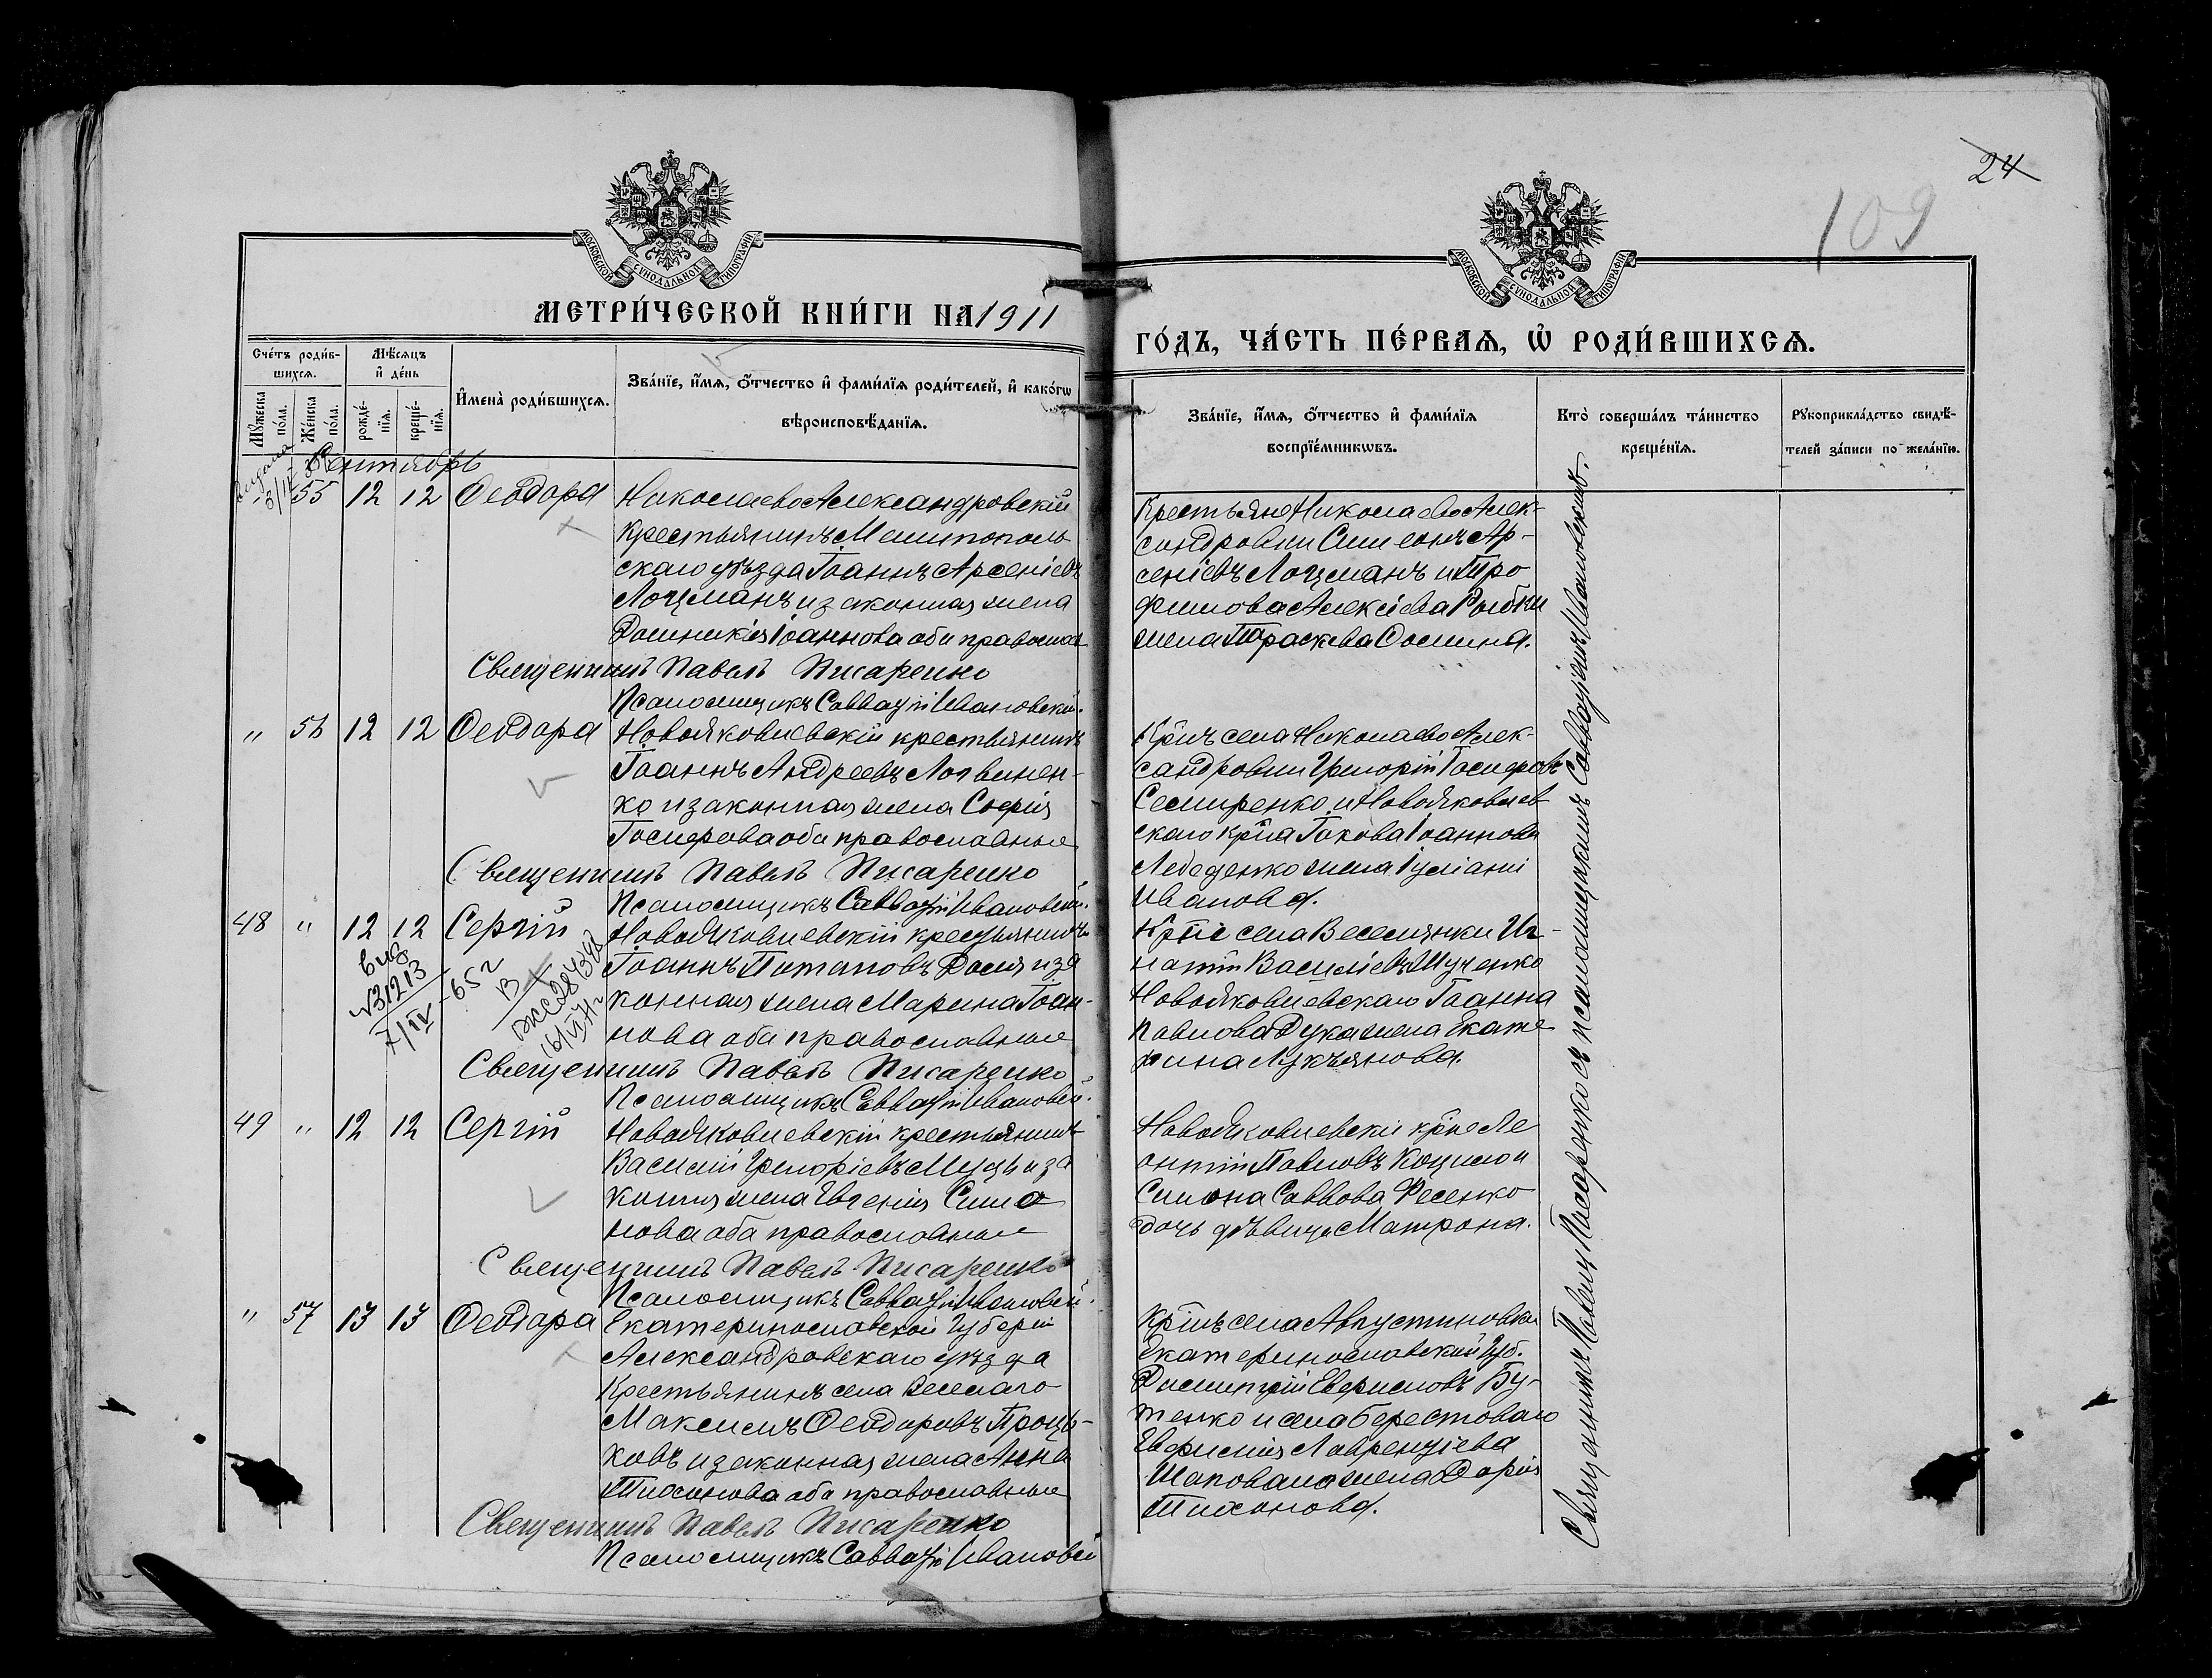 24
109
МОСКОВСКОЙ СѴНОДАЛЬНОЙ ТИПОГРАФІИ
МЕТРИ́ЧЕСКОЙ КНИ́ГИ НА 1911
МОСКОВСКОЙ СѴНОДАЛЬНОЙ ТИПОГРАФІИ
ГО́ДЪ, ЧА́СТЬ ПЕ́РВАѦ, Ѡ҆ РОДИ́ВШИХСѦ.
Сче́тъ роди́вшихсѧ.
Мꙋ́жеска по́ла.
Же́нска по́ла.
Мѣ́сѧцъ и҆ де́нь
рожде́нїѧ.
креще́нїѧ.
И҆мена̀ роди́вшихсѧ.
Зва́нїе, и҆́мѧ, ѻ҆́тчество и҆ фами́лїѧ роди́телей, и҆ како́гѡ
вѣроисповѣ́данїѧ.
Зва́нїе, и҆́мѧ, ѻ҆́тчество и҆ фами́лїѧ
воспрїе́мникѡвъ.
Кто̀ соверша́лъ та́инство
креще́нїѧ.
Рꙋкоприкла́дство свидѣ́телей за́писи по жела́нїю.
Сентябрь
55 12 12 Ѳеодора
Николаево Александровскій
крестьянинъ Мелитополь
скаго уѣзда Іоаннъ Арсеніевъ
Лоцманъ и законная жена
Домникія Іоаннова оба православ
Священникъ Павелъ Писаренко
Псаломщикъ Савватій Ивановскій.
Крестьяне Николаево Алек-
сандровки Симеонъ Ар-
сеніевъ Лоцманъ и Тро
фимова Алексіева Рыбки
жена Параскева Ѳомина.
" 56 12 12 Ѳеодора
Новояковлевскій крестьянинъ
Іоаннъ Андреевъ Логвинен-
ко и законная жена Софія
Іосифова оба православные
Священникъ Павелъ Писаренко
Псаломщикъ Савватій Ивановскій.
Кр̃нъ села Николаево Алек-
сандровки Григорій Іосифовъ
Семиренко и Новояковлев
скаго кр̃на Іакова Іоаннова
Лебеденко жена Іуліанія
Иванова.
48 " 12 12 Сергій
вид
№31213
7/IV-65 г
Новояковлевскій крестьянинъ
Іоаннъ Потаповъ и за
конная жена Марина Іоан-
нова оба православные
Священникъ Павелъ Писаренко
Псаломщикъ Савватій Ивановскій.
Кр̃не села Веселянки Иг-
натій Василіевъ Шученко
Новояковлевскаго Іоанна
Павлова Дука жена Екате
рина Лукъянова.
49 " 12 12 Сергій
Новояковлевскій крестьянинъ
Василій Григоріевъ и за
конная жена Евгенія Симо
нова оба православные
Священникъ Павелъ Писаренко
Псаломщикъ Савватій Ивановскій.
Новояковлевскіе кр̃не Ле
онтій Павловъ и
Симона Саввова Фесенко
дочь дѣвица Матрона.
" 57 13 13 Ѳеодора
Екатеринославской Губерніи
Александровскаго уѣзда
Крестьянинъ села Веселаго
Максимъ Ѳеодоровъ Проць-
ковъ и законная жена Анна
Тихонова оба православные
Священникъ Павелъ Писаренко
Псаломщикъ Савватій Ивановскій
Кр̃нъ села Августиновки
Екатеринославской Губ.
Димитрій Евфимовъ Бу-
тенко и села Берестоваго
Евфимія Лаврентіева
Шаповала жена Дарія
Тихонова.
Священникъ Павелъ Писаренко съ псаломщикомъ Савватіемъ Ивановскимъ.